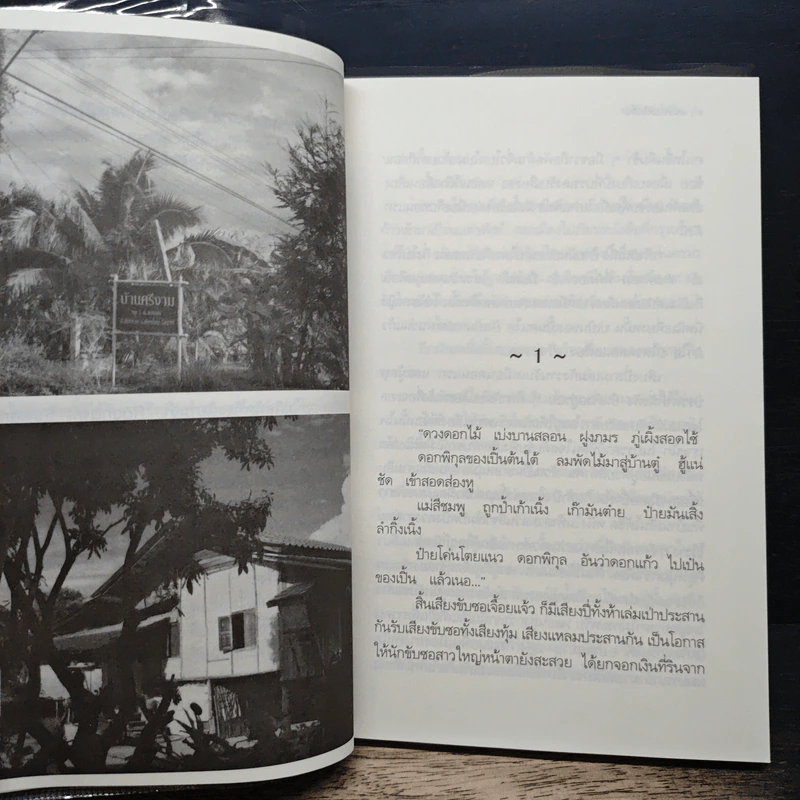 บ้านศรีงาม
~ 1 ~
"ดวงดอกไม้ เบ่งบานสลอน ฝูงภมร ภู่เผิ้งสอดไซ้
ดอกพิกุลของเปิ้นต้นใต้ ลมพัดไม้มาสู่บ้านตู๋ ฮู้แน่
ชัด เข้าสอดส่องหู
แม่สีชมพู ถูกป้ำเก้าเนิ้ง เก๊ามันต่าย ป๋ายมันเสิ้ง
ลำกิ้งเนิ้ง
ป๋ายโค่นโตยแนว ดอกพิกุล อันว่าดอกแก้ว ไปเป๋น
ของเปิ้น แล้วเนอ..."
สิ้นเสียงขับซอเจื้อยแจ้ว ก็มีเสียงปี่ทั้งห้าเล่มเป่าประสาน
กันรับเสียงขับซอทั้งเสียงทุ้ม เสียงแหลมประสานกัน เป็นโอกาส
ให้นักขับซอสาวใหญ่หน้าตายังสะสวย ได้ยกจอกเงินที่รินจาก